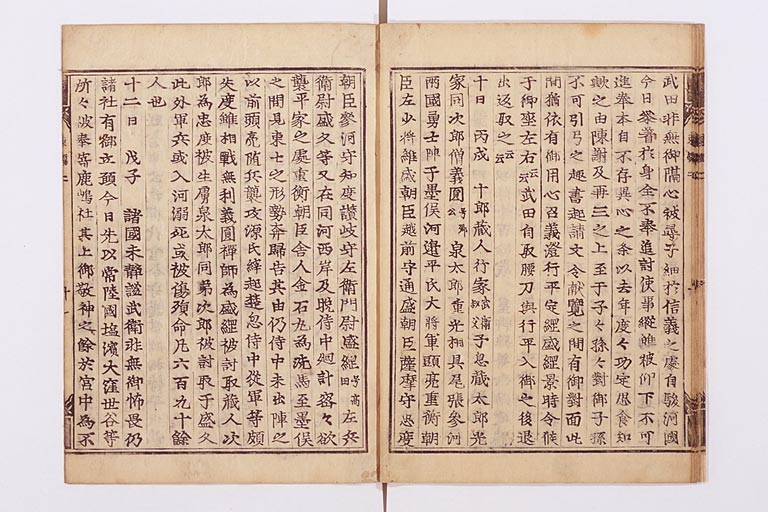 武田非無御隔心被尋子細於信義之處自駿河國
今日參着於身全不奉追討使事縱雖被仰下不可
進奉本自不存異心之条以去年度々功定思食知
歟之由陳謝及再三之上至于子々孫々對御子孫
不可引弓之趣書起請文令献覽之間有御對面此
間猶依有御用心召義澄行平定綱盛綱景時令候
于御座左右云云武田自取腰刀與行平入御之後退
出返取之云云
十日 丙戌 十郎藏人行家武衛叔父子息藏太郎光
家同次郎僧義圓号卿公泉太郎重光相具尾張參河
兩國勇士陣于墨俣河邊平氏大將軍頭亮重衡朝
臣左少將維盛朝臣越前守通盛朝臣薩摩守忠度
朝臣參河守知度讃岐守左衛門尉盛綱号高田左兵
衛尉盛久等又在同河西岸及晩侍中廻計密々欲
襲平家之處重衡朝臣舎人金石丸為洗馬至墨俣
之間見東士之形勢奔歸告其由仍侍中未出陣之
以前頭亮随兵襲攻源氏縡起楚忽侍中從軍等頗
失度雖相戰無利義圓禅師為盛綱被討取藏人次
郎為忠度被生虜泉太郎同弟次郎被討取于盛久
此外軍兵或入河溺死或被傷殞命凡六百九十餘
人也
十二日 戊子 諸國未靜謐武衛非無御怖畏仍
諸社有御立願今日先以常陸國塩濱大窪世谷等
所々被奉寄鹿嶋社其上御敬神之餘於宮中為不